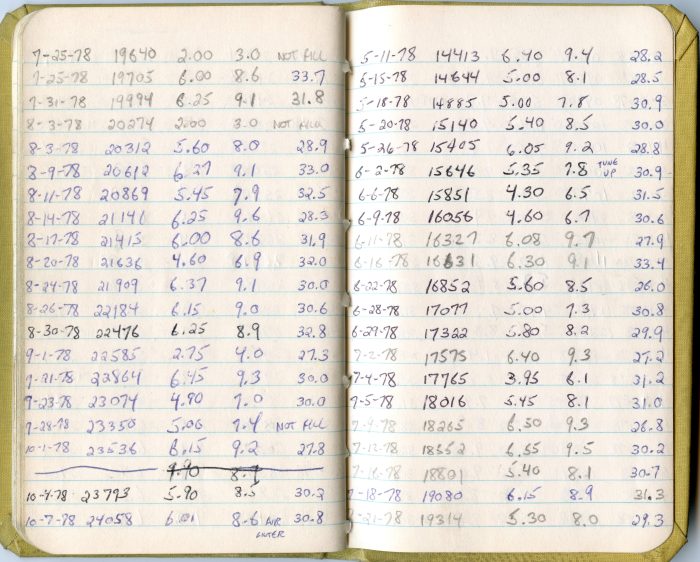 7-25-78 19640 2.00 3.0 NOT FILL
7-25-78 19705 6.00 8.6 33.7
7-31-78 19994 6.25 9.1 31.8
8-3-78 20274 2.00 3.0 NOT FILL
8-3-78 20312 5.60 8.0 28.9
8-9-78 20612 6.27 9.1 33.0
8-11-78 20869 5.45 7.9 32.5
8-14-78 21141 6.25 9.6 28.3
8-17-78 21415 6.00 8.6 31.9
8-20-78 21636 4.60 6.9 32.0
8-24-78 21909 6.37 9.1 30.0
8-26-78 22184 6.15 9.0 30.6
8-30-78 22476 6.25 8.9 32.8
9-1-78 22585 2.75 4.0 27.3
9-21-78 22864 6.45 9.3 30.0
9-23-78 23074 4.90 7.0 30.0
9-28-78 23350 5.00 7.4 NOT FILL
10-1-78 23536 6.15 9.2 27.8
10-4-78 23793 5.90 8.5 30.2
10-7-78 24058 6.01 8.6 AIR FILTER 30.8
5-11-78 14413 6.40 9.4 28.2
5-15-78 14644 5.00 8.1 28.5
5-18-78 14885 5.00 7.8 30.9
5-20-78 15140 5.40 8.5 30.0
5-26-78 15405 6.05 9.2 28.8
6-2-78 15646 5.35 7.8 TUNE UP 30.9
6-6-78 15851 4.30 6.5 31.5
6-9-78 16056 4.60 6.7 30.6
6-11-78 16327 6.08 9.7 27.9
6-16-78 16631 6.30 9.1 33.4
6-22-78 16852 5.60 8.5 26.0
6-28-78 17077 5.00 7.3 30.8
6-29-78 17322 5.80 8.2 29.9
7-2-78 17575 6.40 9.3 27.2
7-4-78 17765 3.95 6.1 31.2
7-5-78 18016 5.45 8.1 31.0
7-9-78 18265 6.50 9.3 26.8
7-12-78 18552 6.55 9.5 30.2
7-16-78 18801 5.40 8.1 30.7
7-18-78 19080 6.15 8.9 31.3
7-21-78 19314 5.30 8.0 29.3